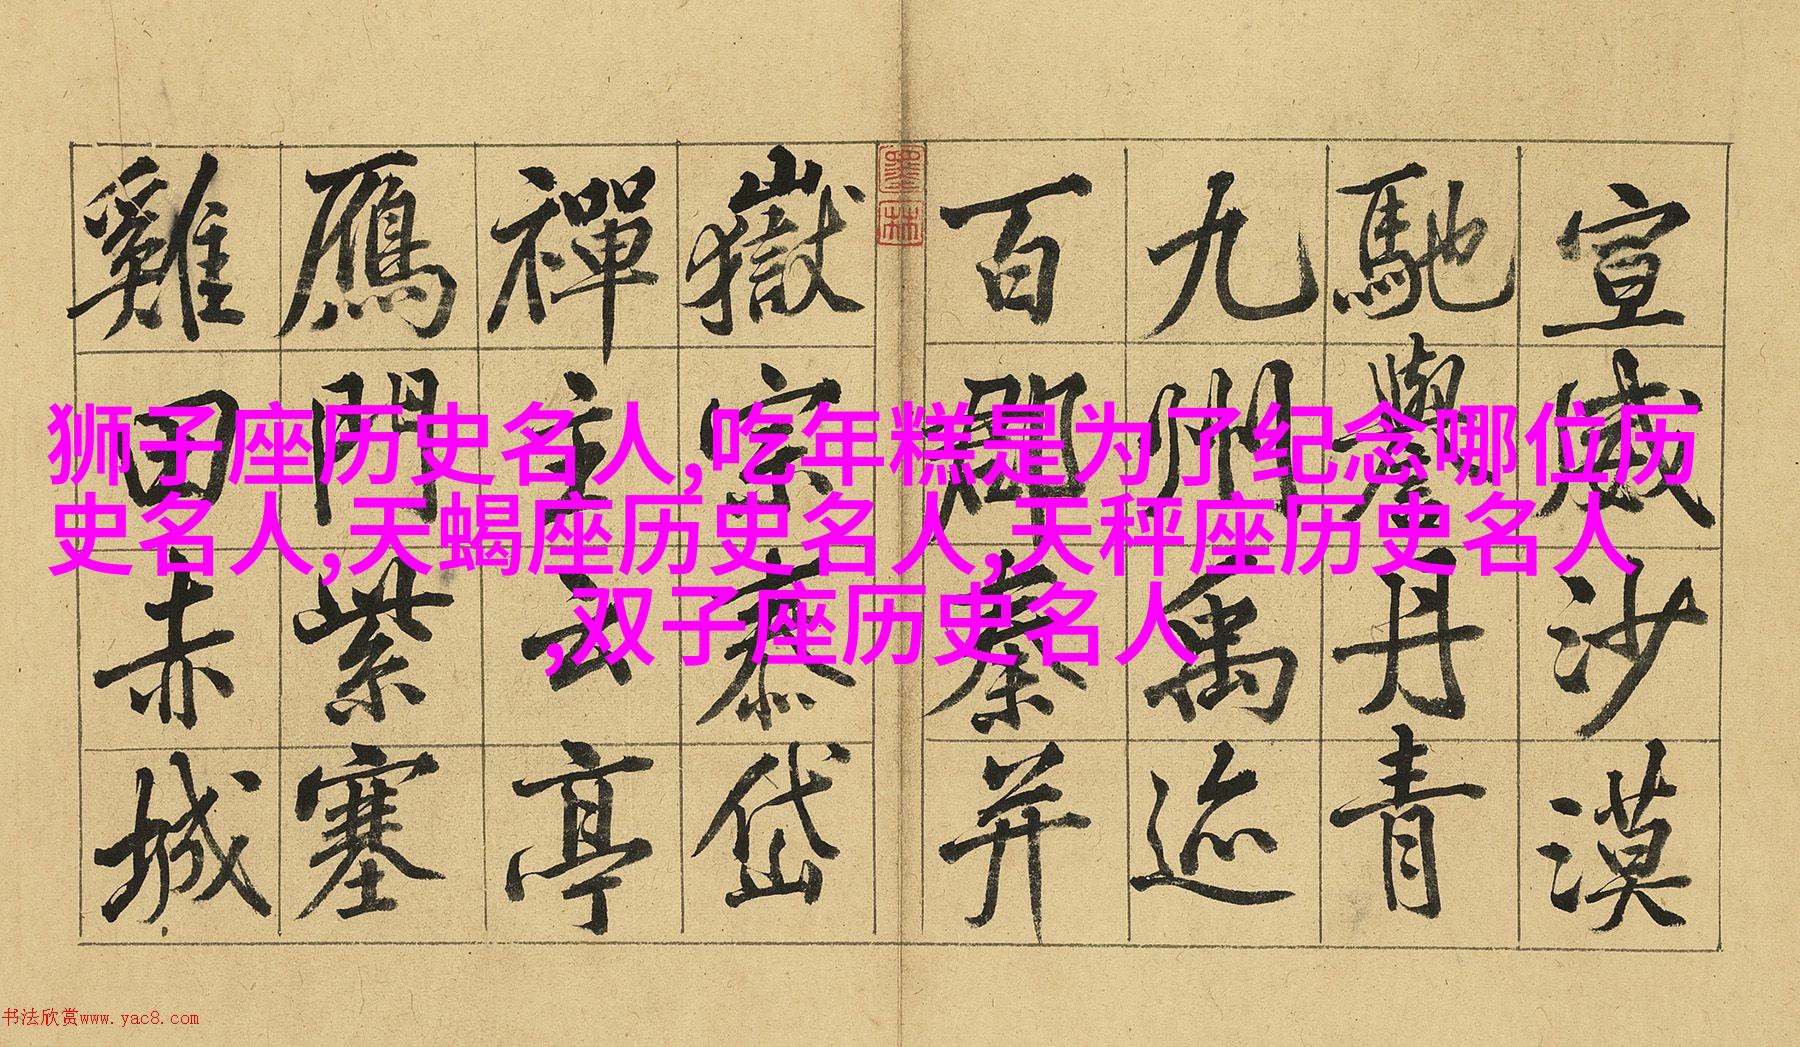 狮子座历史名人,吃年糕是为了纪念哪位历
史名人,天蝎座历史名人,天秤座历史名人
,双子座历史名人
宣威沙漠
馳譽丹青
九州禹迹
百郡秦并
嶽宗泰岱
禪主云亭
鴈門紫塞
雞田赤城
墨林
书法欣赏www.yac8.com